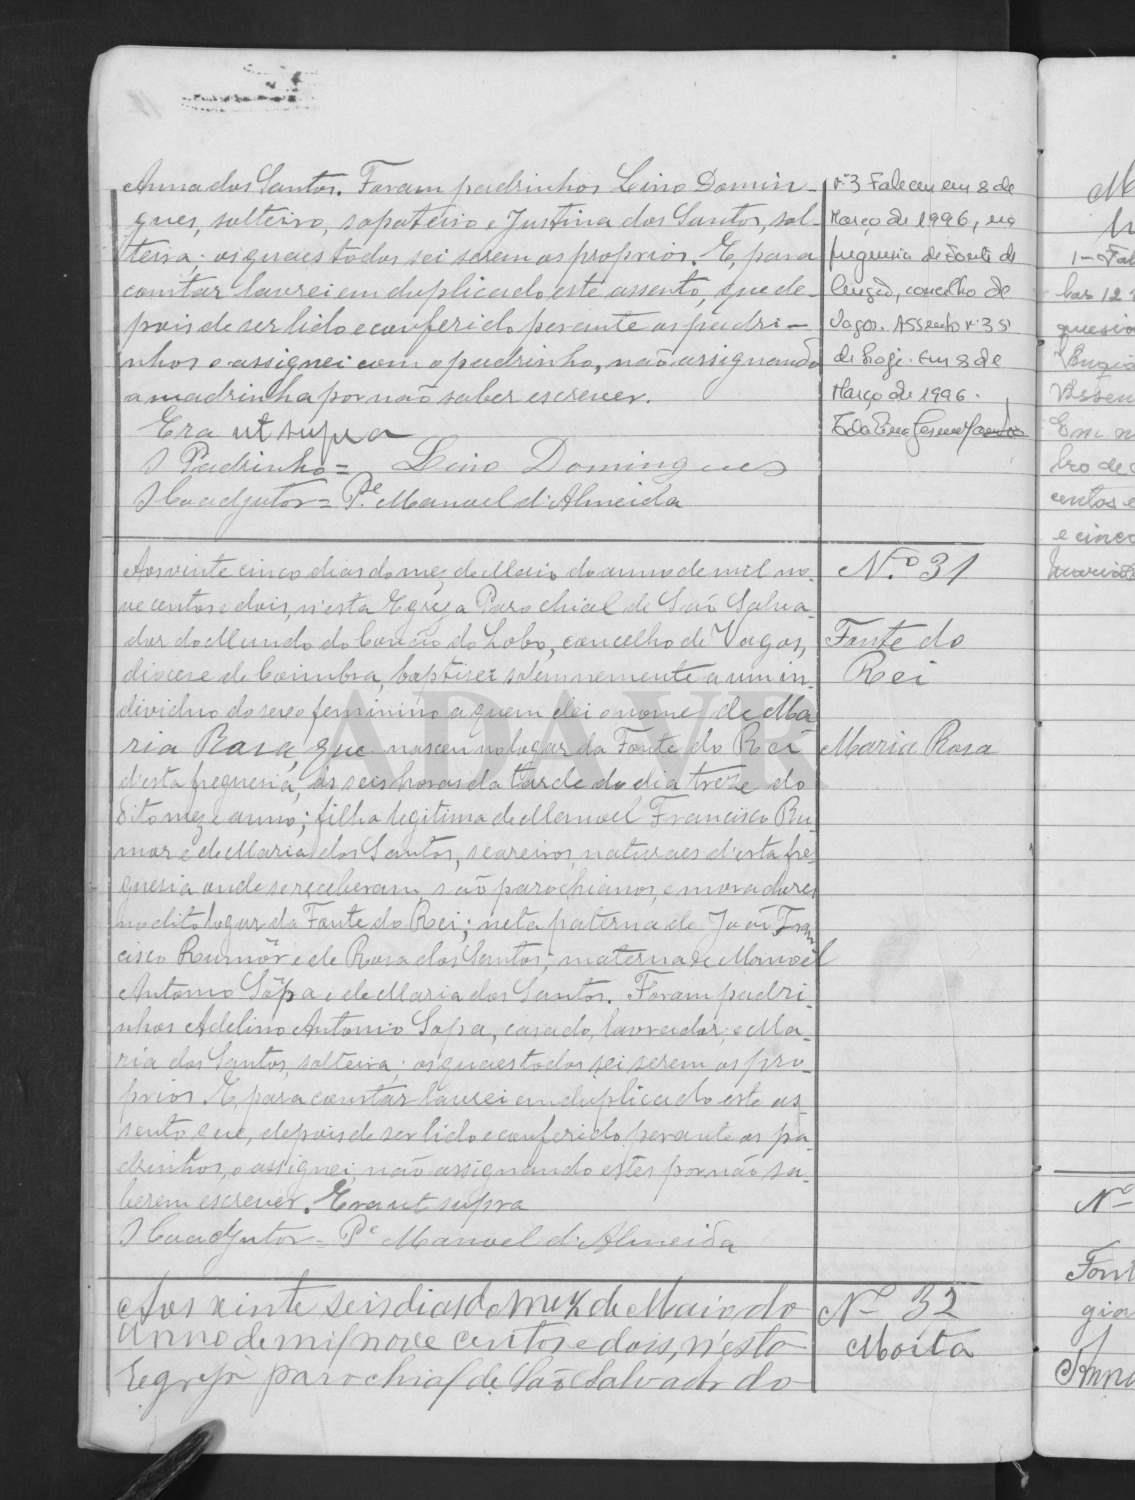 Anna dos Santos. Foram padrinhos Lino Domin-
gues, solteiro, sapateiro e Justina dos Santos, sol-
teira; os quaes todos sei serem os proprios. E, para
constar lavrei em duplicado este assento, que de-
pois de ser lido e conferido perante os padri-
nhos o assignei com o padrinho, não assignando
a madrinha por não saber escrever.
Era ut supra
O Padrinho = Lino Domingues
O Coadjutor = P.e Manuel d'Almeida
nº3 Faleceu em 8 de
Março de 1996, na
freguesia de Fonte de
Angeão, concelho de
Vagos. Assento nº 3
de hoje. Em 8 de
Março de 1996.
Aos vinte cinco dias do mez de Maio do anno de mil no-
ve centos e dois, n'esta Egreja Parochial de São Salva-
dor do Mundo do Covão do Lobo, concelho de Vagos,
diocese de Coimbra, baptisei solemnemente a um in-
dividuo do sexo feminino a quem dei o nome de Ma
ria Rosa, que nasceu no logar da Fonte do Rei
d'esta freguesia, ás seis horas da tarde do dia treze do
dito mez e anno; filha legitima de Manoel Francisco Ru-
mor e de Maria dos Santos, seareiros, naturaes d'esta fre-
guesia onde se receberam são parochianos, e moradores
no dito logar da Fonte do Rei; neta paterna de João Fran
cisco Rumôr e de Rosa dos Santos; materna de Manoel
Antonio Sôpa e de Maria dos Santos. Foram padri-
nhos Adelino Antonio Sopa, casado, lavrador, e Ma-
ria dos Santos, solteira; os quaes todos sei serem os pro-
prios. E, para constar lavrei em duplicado este as-
sento que, depois de ser lido e conferido perante os pa-
drinhos, o assignei, não assignando estes por não sa-
berem escrever. Era ut supra
O Coadjutor - P.e Manoel d'Almeida
N.º 31
Fonte do
Rei
Maria Rosa
Aos vinte seis dias do mez de Maio do
anno de mil nove centos e dois, n'esta
Egreja parochial de São Salvador do
Nº 32
Moita
ADAVR
1-Fal
bro de
centos e
e cinco
Nº
Font